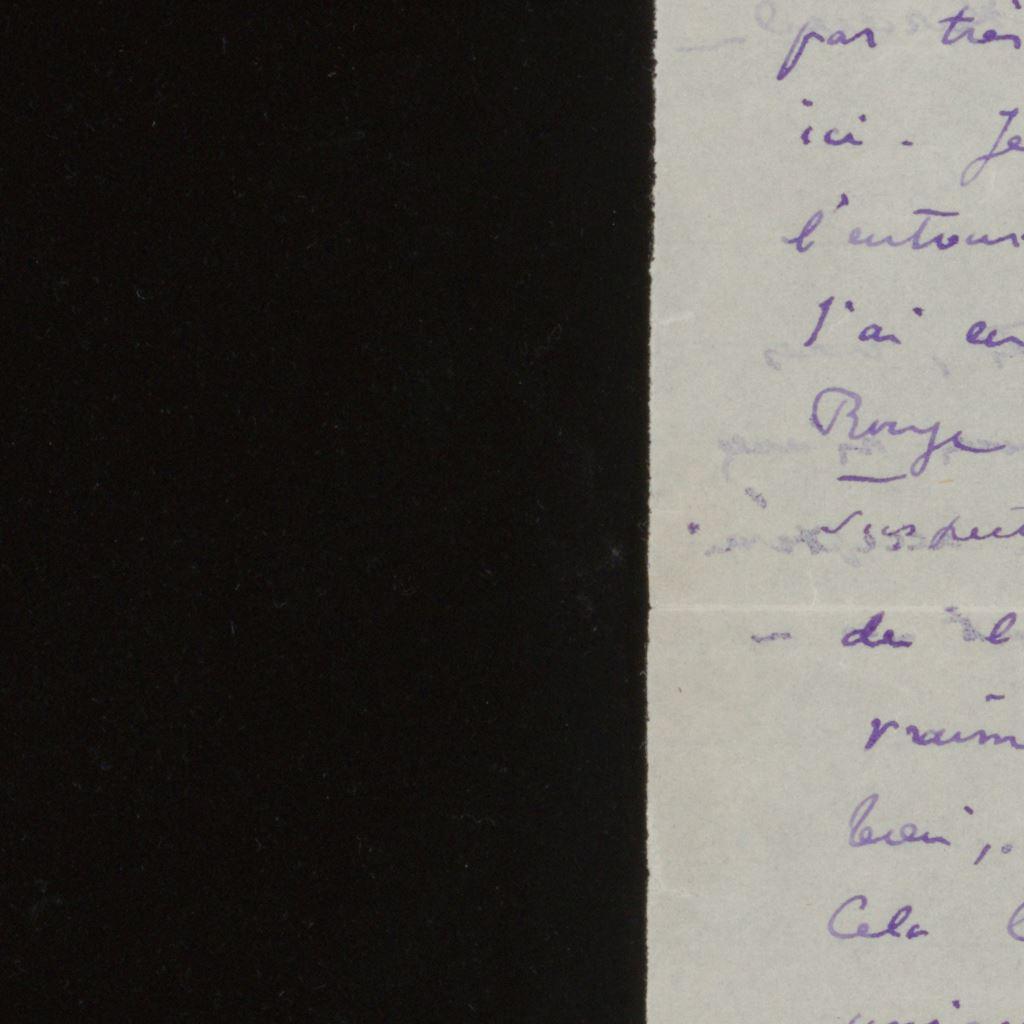 pas très
ici. Je
l'entour
J'ai en
Rouge
suspect
de l
vraim
bien,.
Cela